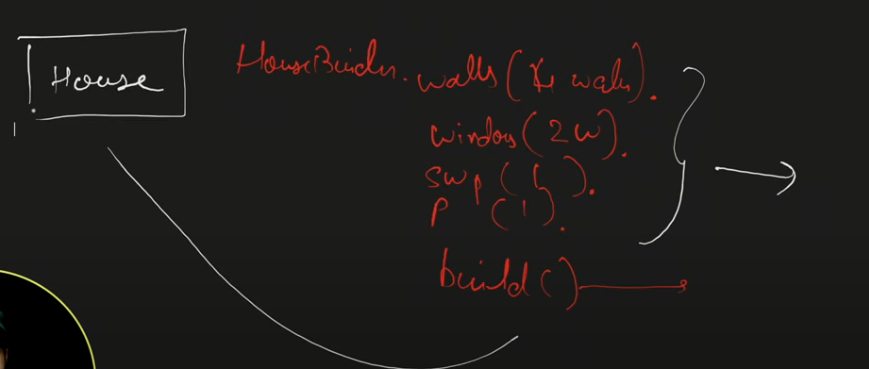 House
HouseBuilder. walls( walls).
window(2w).
swp( ).
P (1).
build()